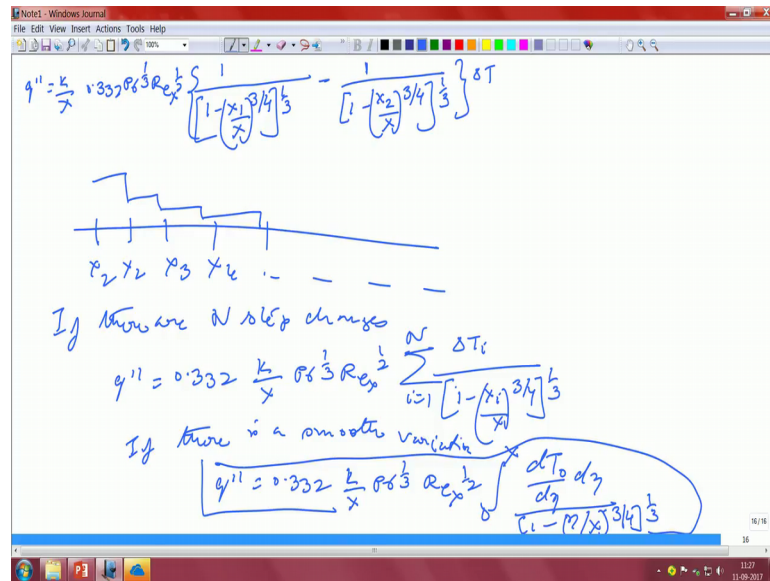 Note1 - Windows Journal
File Edit View Insert Actions Tools Help
100%
q'' = k/x 0.332 Pr^1/3 Re_x^1/2 { 1/[1-(x1/x)^3/4]^1/3 - 1/[1-(x2/x)^3/4]^1/3 } ΔT
x2 x2 x3 x4 . - - - -
If there are N step changes
q'' = 0.332 k/x Pr^1/3 Re_x^1/2 Σ_{i=1}^{N} ΔTi/[1-(xi/x)^3/4]^1/3
If there is a smooth variation
q'' = 0.332 k/x Pr^1/3 Re_x^1/2 ∫_0^x (dT0/dη) dη/[1-(η/x)^3/4]^1/3
16/16
16
11:27
11-09-2017